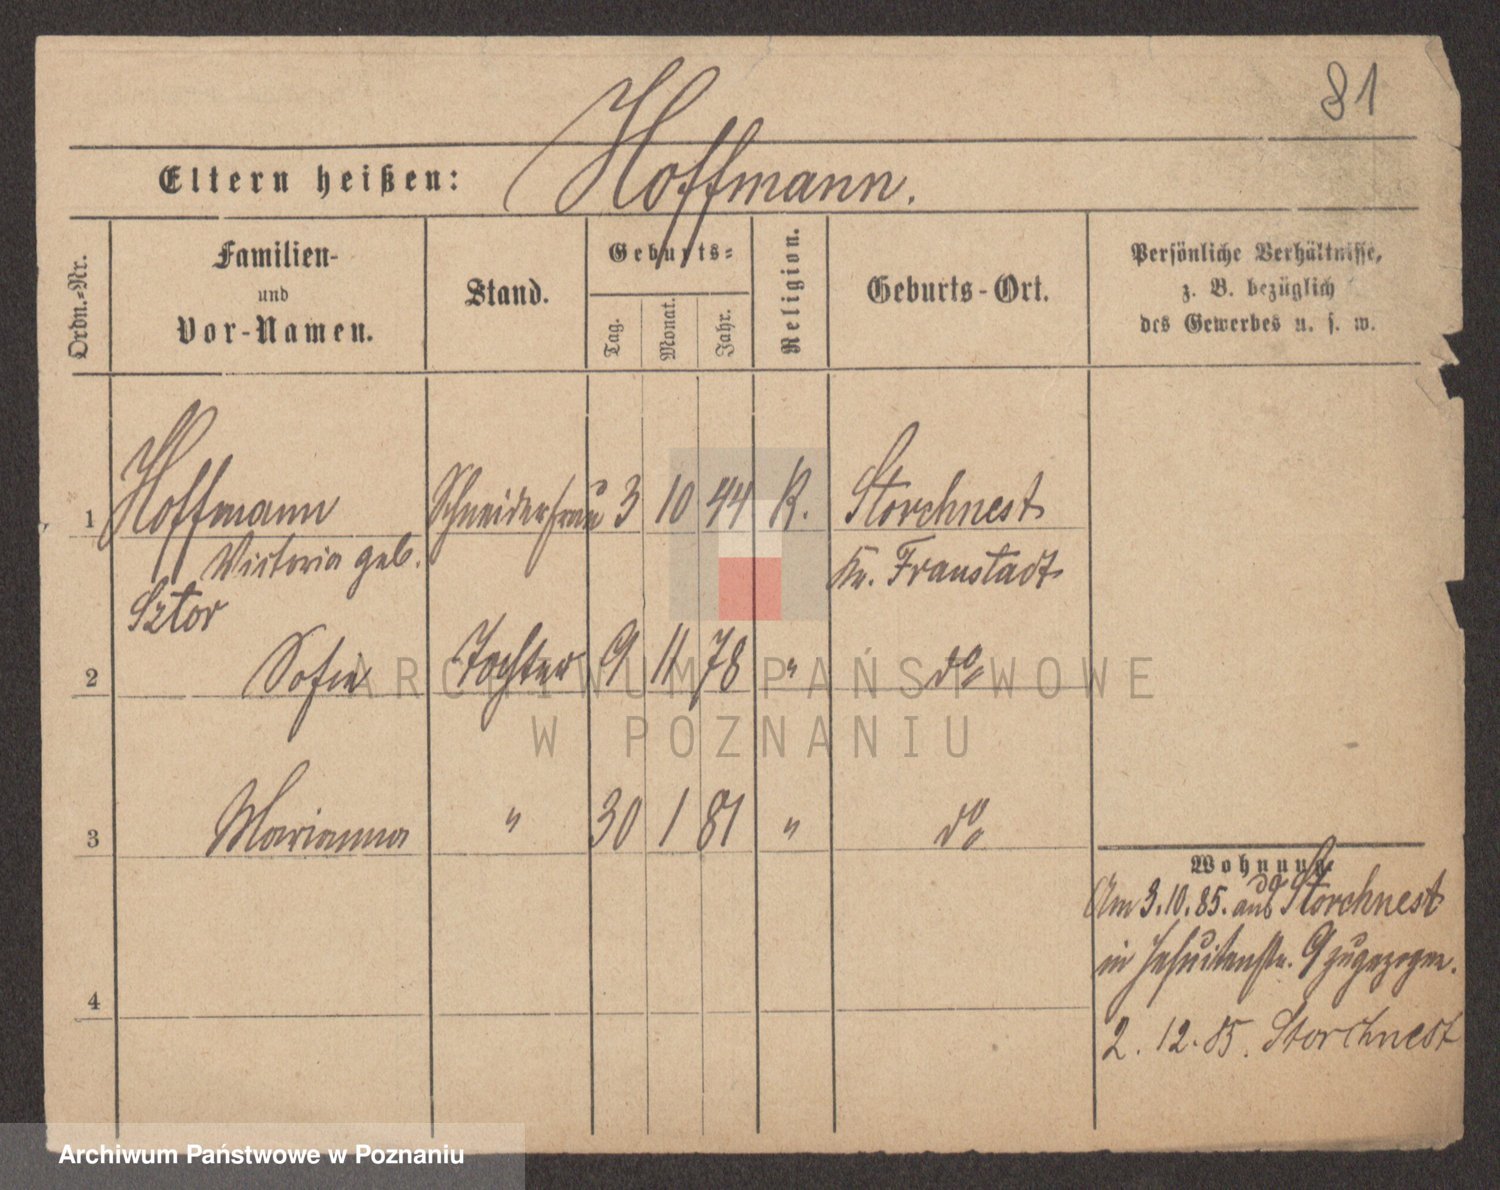 81
Eltern heißen: Hoffmann.
Ordn.-Nr.
Familien-
und
Vor-Namen.
Stand.
Geburts-
Tag.
Monat.
Jahr.
Religion.
Geburts-Ort.
Persönliche Verhältnisse,
z. B. bezüglich
des Gewerbes u. s. w.
1 Hoffmann Schneiderfrau 3 10 44 K. Storchnest
Victoria geb. Kr. Fraustadt
Sztor
2 Sofie Tochter 9 11 78 " do
3 Marianna " 30 1 81 " do
Wohnung.
Am 3.10.85. aus Storchnest
in Jesuitenstr. 9 zugezogen.
4
2. 12. 85. Storchnest
ARCHIWUM PAŃSTWOWE
W POZNANIU
Archiwum Państwowe w Poznaniu